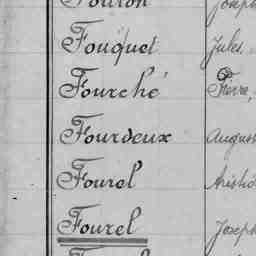 Foulon Joseph
Fouquet Jules,
Fourché Pierre,
Fourdeux August
Fourel Aristid
Fourel Joseph